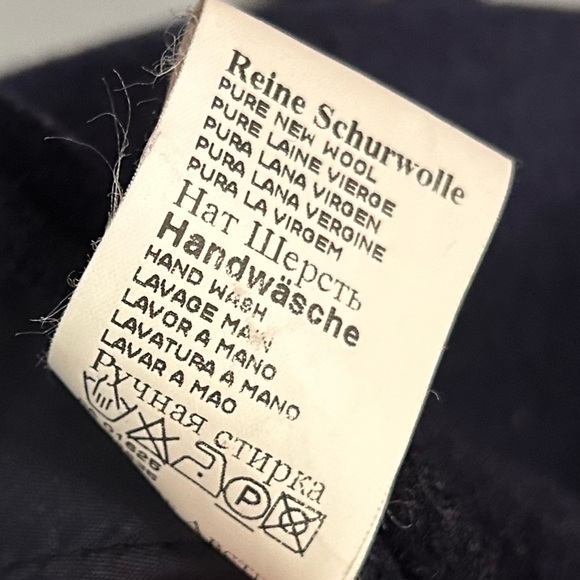 Reine Schurwolle
PURE NEW WOOL
PURE LAINE VIERGE
PURA LANA VIRGEN
PURA LANA VERGINE
PURA LA VIRGEM
Нат Шерсть
Handwäsche
HAND WASH
LAVAGE MAIN
LAVOR A MANO
LAVATURA A MANO
LAVAR A MAO
Ручная стирка
P